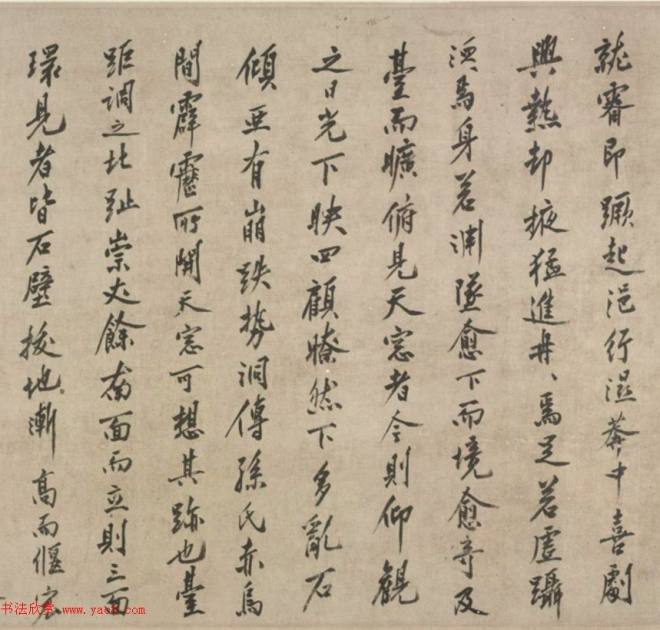 就寢即蹶起浥行濕莽中喜劇
興熱却掖猛進冉冉焉足若虛躡
須馬身若淵墜愈下而境愈奇及
臺而曠俯見天窓者今則仰觀
之日光下映四顧暸然下多亂石
傾亜有崩跌勢洞傳孫氏赤烏
間霹靂所開天窓可想其跡也臺
距洞之北趾崇丈餘南面而立則三面
環見者皆石壁拔地漸高而偃宏
书法欣赏 www.yac8.com